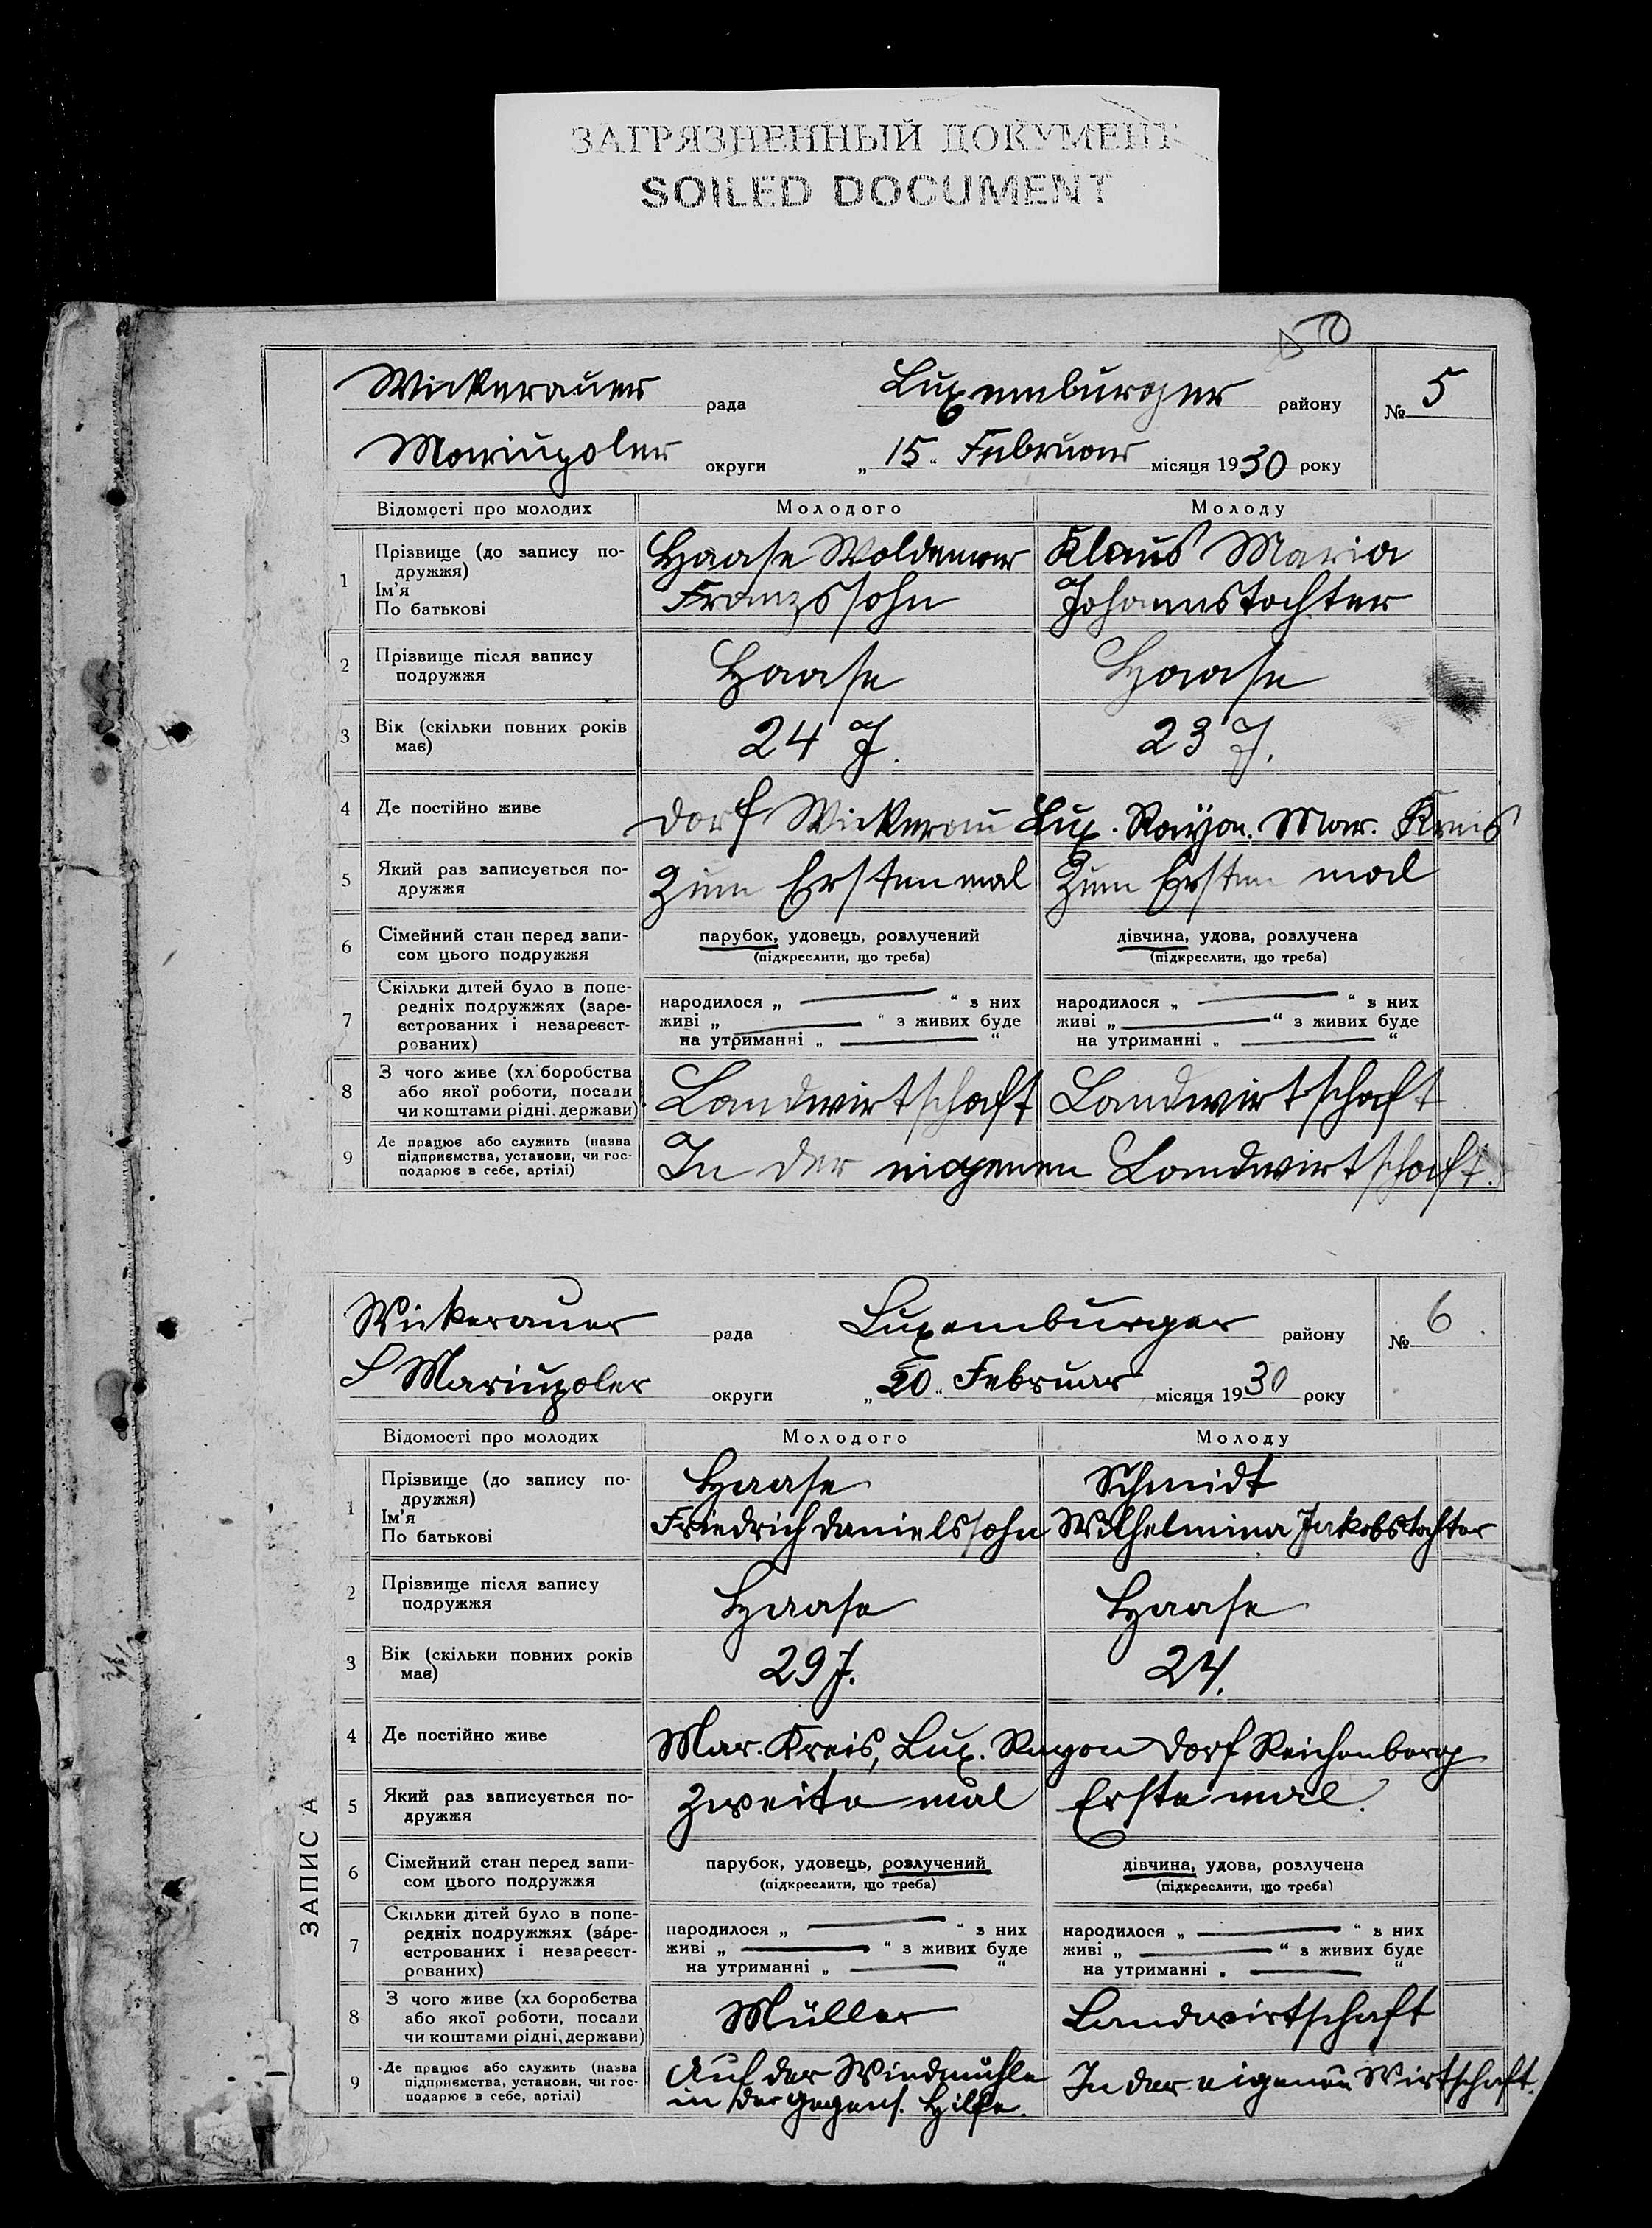 ЗАГРЯЗНЕННЫЙ ДОКУМЕНТ
SOILED DOCUMENT
50
Wickerauer рада Luxemburger району № 5
Mariupoler округи „15“ Februar місяця 1930 року
Відомості про молодих Молодого Молоду
1 Прізвище (до запису подружжя) Ім'я По батькові
Haase Woldemar Klaus Maria
Franzssohn Johannstochter
2 Прізвище після запису подружжя Haase Haase
3 Вік (скільки повних років має) 24 J. 23 J.
4 Де постійно живе Dorf Wickerau Lux. Rayon. Mar. Kreis
5 Який раз записується подружжя Zum Ersten mal Zum Ersten mal
6 Сімейний стан перед записом цього подружжя парубок, удовець, розлучений дівчина, удова, розлучена
(підкреслити, що треба) (підкреслити, що треба)
7 Скільки дітей було в попередніх подружжях (зареєстрованих і незареєстрованих)
народилося „ — “ з них народилося „ — “ з них
живі „ — “ з живих буде живі „ — “ з живих буде
на утриманні „ — “ на утриманні „ — “
8 З чого живе (хліборобства або якої роботи, посади чи коштами рідні, держави) Landwirtschaft Landwirtschaft
9 Де працює або служить (назва підприємства, установи, чи господарює в себе, артілі) In der eigenen Landwirtschaft.
ЗАПИС А
Wickerauer рада Luxemburger району № 6.
Mariupoler округи „20“ Februar місяця 1930 року
Відомості про молодих Молодого Молоду
1 Прізвище (до запису подружжя) Ім'я По батькові
Haase Schmidt
Friedrich Danielssohn Wilhelmina Jakobstochter
2 Прізвище після запису подружжя Haase Haase
3 Вік (скільки повних років має) 29 J. 24.
4 Де постійно живе Mar. Kreis, Lux. Rayon Dorf Reichenberg
5 Який раз записується подружжя Zweite mal Erste mal.
6 Сімейний стан перед записом цього подружжя парубок, удовець, розлучений дівчина, удова, розлучена
(підкреслити, що треба) (підкреслити, що треба)
7 Скільки дітей було в попередніх подружжях (зареєстрованих і незареєстрованих)
народилося „ — “ з них народилося „ — “ з них
живі „ — “ з живих буде живі „ — “ з живих буде
на утриманні „ — “ на утриманні „ — “
8 З чого живе (хліборобства або якої роботи, посади чи коштами рідні, держави) Müller Landwirtschaft
9 Де працює або служить (назва підприємства, установи, чи господарює в себе, артілі)
Auf der Windmühle In der eigenen Wirtschaft.
in der gegens. Hilfe.